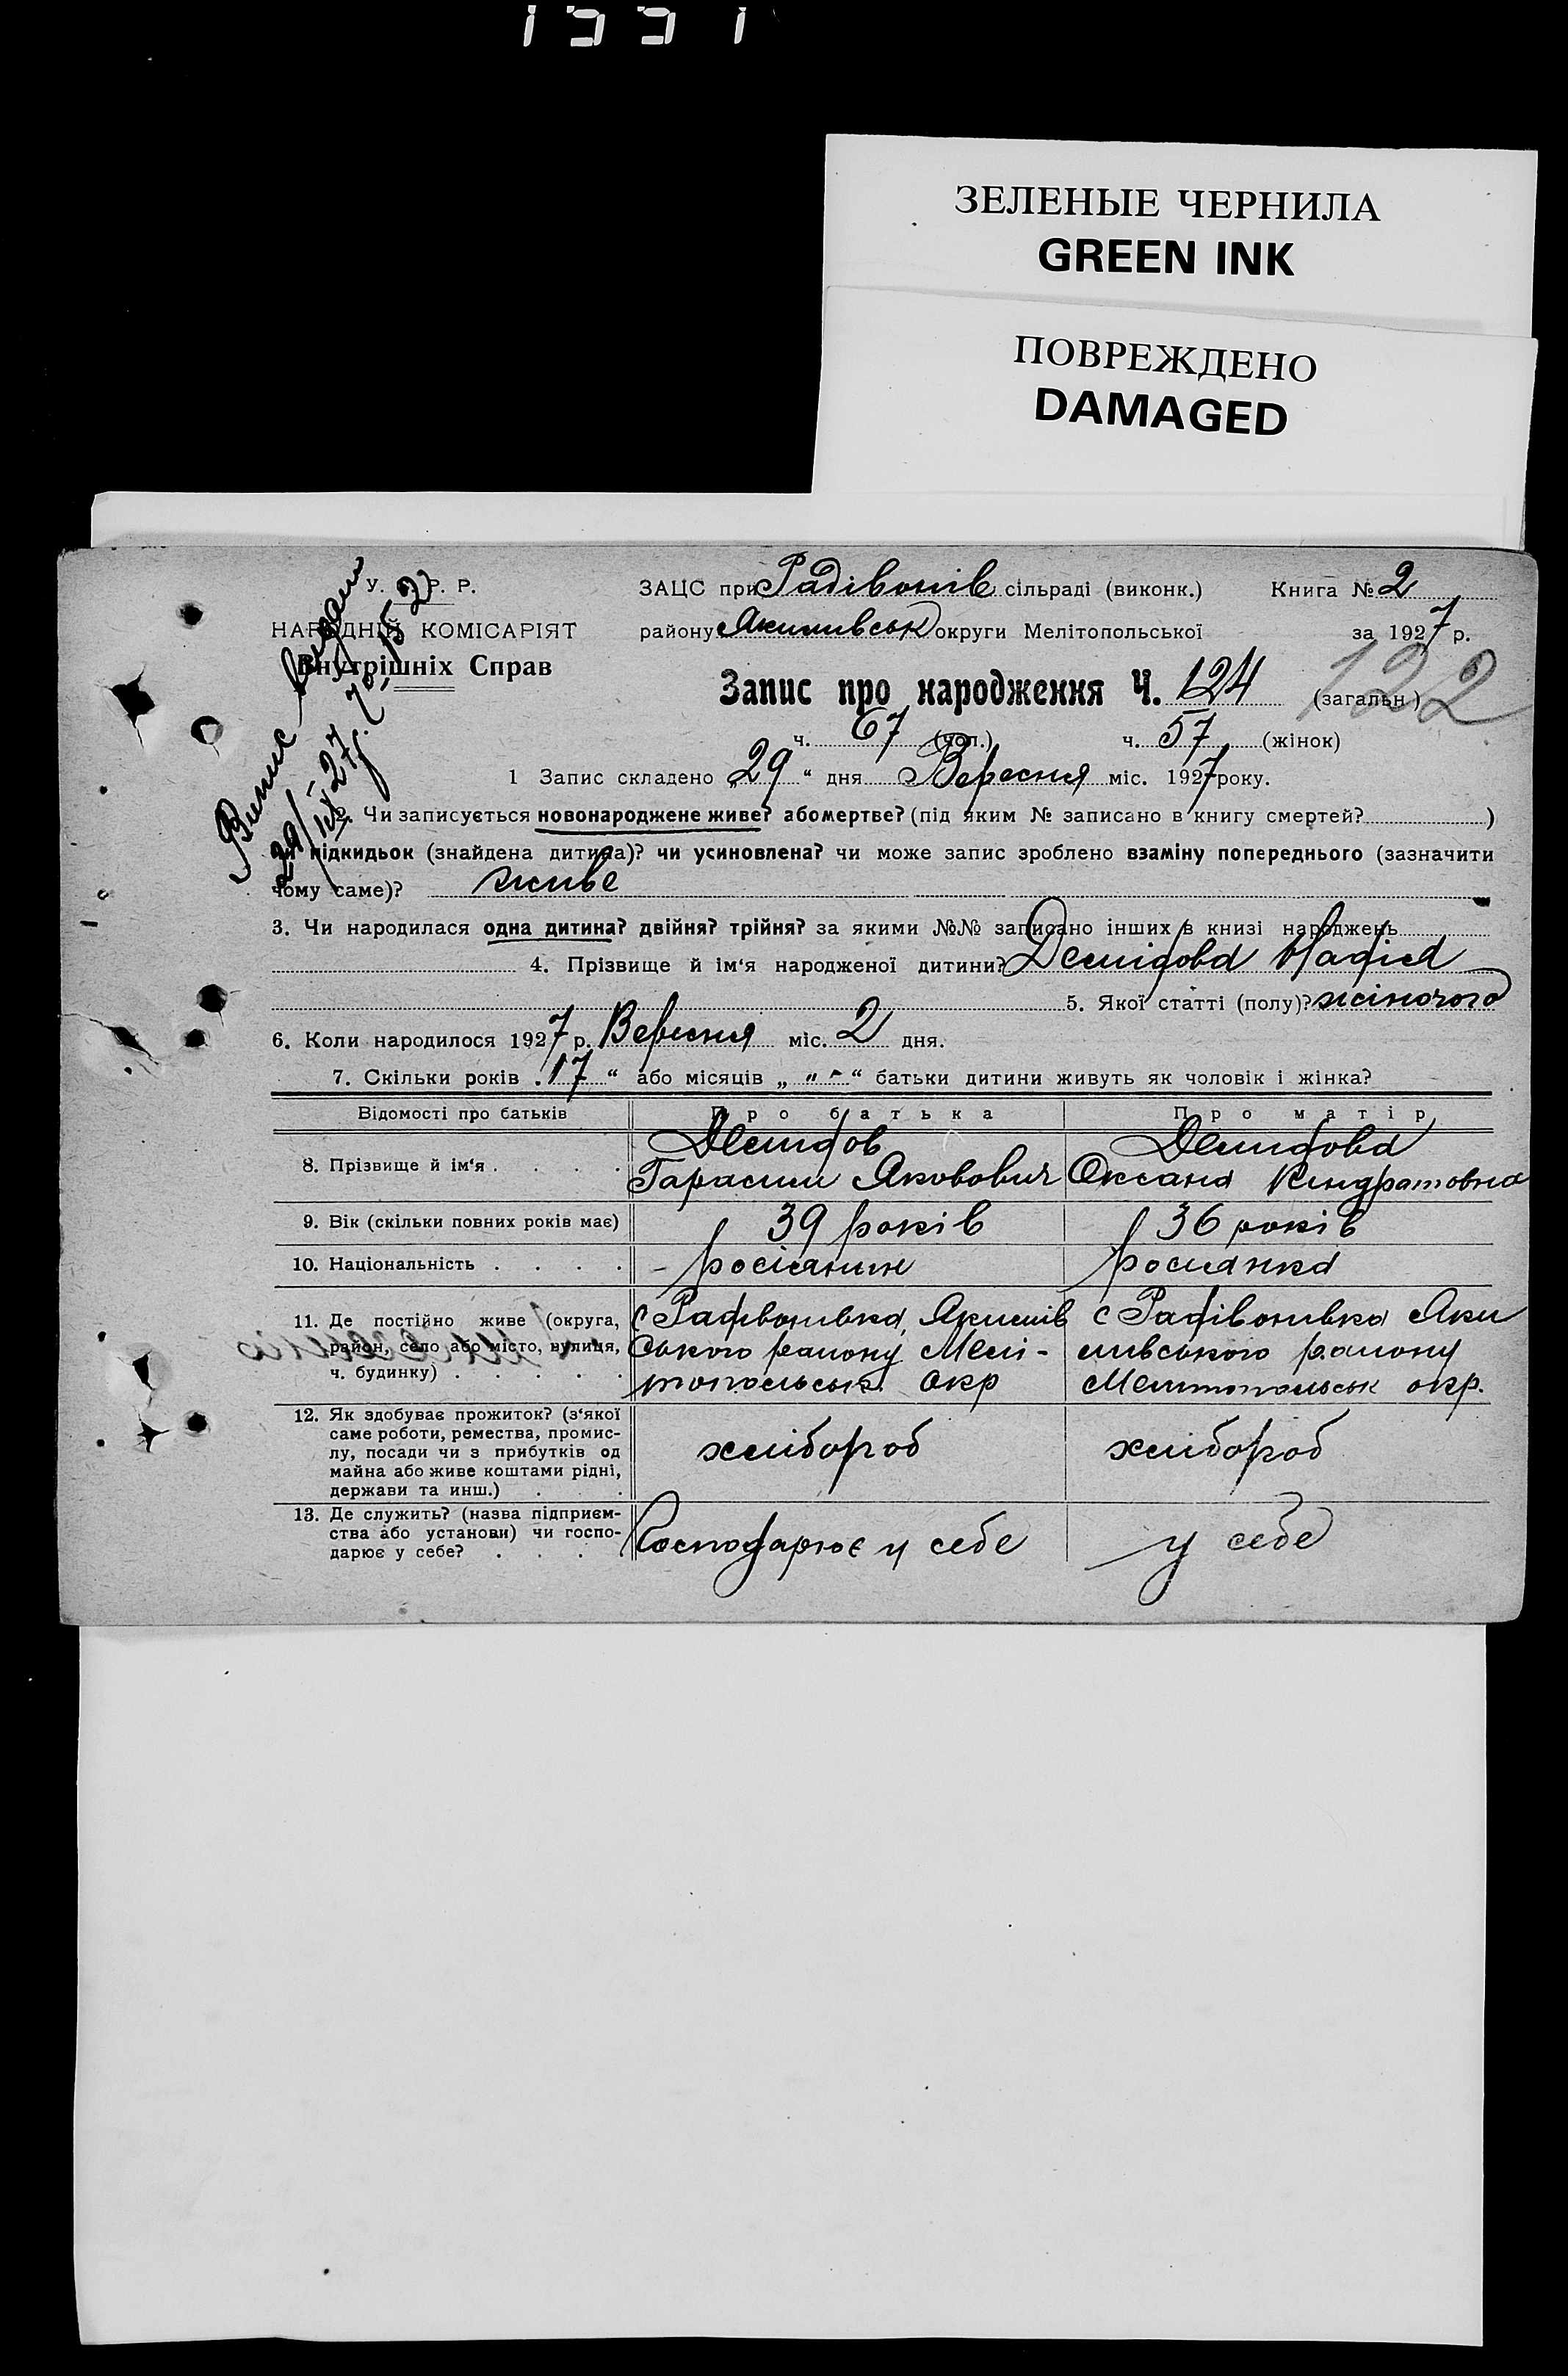 ЗЕЛЕНЫЕ ЧЕРНИЛА
GREEN INK
ПОВРЕЖДЕНО
DAMAGED
У. Р. Р.
НАРОДНІЙ КОМІСАРІЯТ
Внутрішніх Справ
Випис видано
29/IX-27 р.
ЗАЦС при Радівонів сільраді (виконк.) Книга № 2
району Якимівськ округи Мелітопольської за 1927 р.
Запис про народження Ч. 124 (загальн.) 122
ч. 67 (чол.) ч. 57 (жінок)
1 Запис складено „29“ дня Вересня міс. 1927 року.
2. Чи записується новонароджене живе? або мертве? (під яким № записано в книгу смертей? )
чи підкидьок (знайдена дитина)? чи усиновлена? чи може запис зроблено взаміну попереднього (зазначити
чому саме)? живе
3. Чи народилася одна дитина? двійня? трійня? за якими №№ записано інших в книзі народжень
4. Прізвище й ім‘я народженої дитини? Демідова Надія
5. Якої статті (полу)? жіночого
6. Коли народилося 1927 р. Вересня міс. 2 дня.
7. Скільки років „17“ або місяців „ - “ батьки дитини живуть як чоловік і жінка?
Відомості про батьків Про батька Про матір
8. Прізвище й ім‘я . . . . Демидов Гарасим Якович Демидова Оксана Киндратовна
9. Вік (скільки повних років має) 39 років 36 років
10. Національність . . . . росіянин росиянка
11. Де постійно живе (округа, с Радивонивка, Якимів с Радівонивка Яки
район, село або місто, вулиця, ського району Мелі- мивського району
ч. будинку) . . . . . топольськ. окр Мелитопольськ окр.
12. Як здобуває прожиток? (з‘якої
саме роботи, ремества, промис-
лу, посади чи з прибутків од хлібороб хлібороб
майна або живе коштами рідні,
держави та инш.) . .
13. Де служить? (назва підприєм-
ства або установи) чи госпо- Господарює у себе у себе
дарює у себе? . . . .